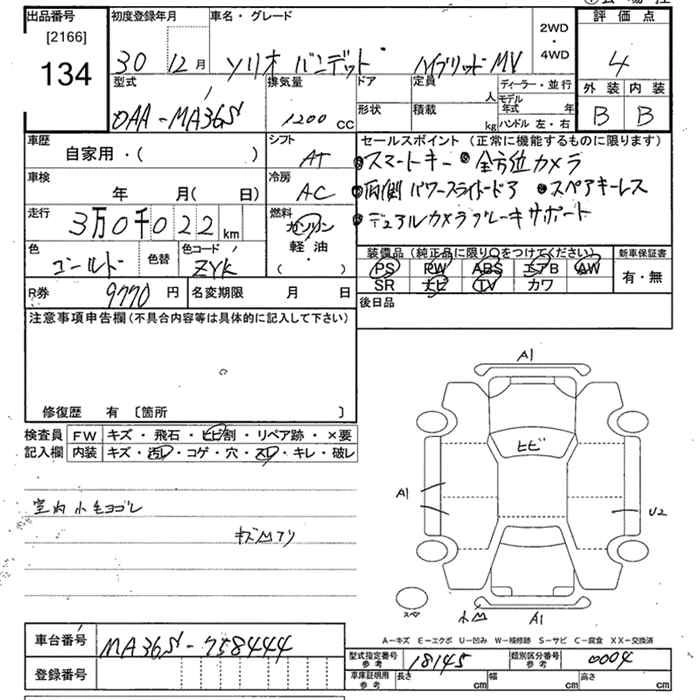 出品番号
[2166]
134
初度登録年月
30 12月
車名・グレード
ソリオ バンデット Mブリッド MV
2WD
・
4WD
評価点
4
外装 内装
B B
型式
DAA-MA36S
排気量
1200 CC
ドア
定員
人
ディーラー・並行
モデル年式 年
形状
積載
kg
ハンドル 左・右
車歴
自家用・( )
シフト
AT
セールスポイント (正常に機能するものに限ります)
●スマートキー ●全方位カメラ
●両側パワースライドドア ●スペアキーレス
●デュアルカメラブレーキサポート
車検
年 月( 日)
冷房
AC
走行
3万0千022km
燃料
ガソリン
軽・油
( )
色
ゴールド
色替
色コード
ZYK
装備品(純正品に限り○をつけてください)
新車保証書
PS PW ABS エアB AW
SR ナビ TV カワ
有・無
R券
9770円
名変期限 月 日
後日品
注意事項申告欄(不具合内容等は具体的に記入して下さい)
修復歴 有 〔箇所 〕
検査員
記入欄
FW キズ・飛石・ヒビ割・リペア跡・×要
内装 キズ・汚レ・コゲ・穴・スレ・キレ・破レ
室内小キズヨゴレ
キズ凹アリ
A1
ヒビ
A1
U2
スペ
小凹
A1
A-キズ E-エクボ U-凹み W-補修跡 S-サビ C-腐食 XX-交換済
車台番号
MA36S-758444
登録番号
型式指定番号
参考
18145
類別区分番号
参考
0004
車庫証明用
参考
長さ cm
幅 cm
高さ cm